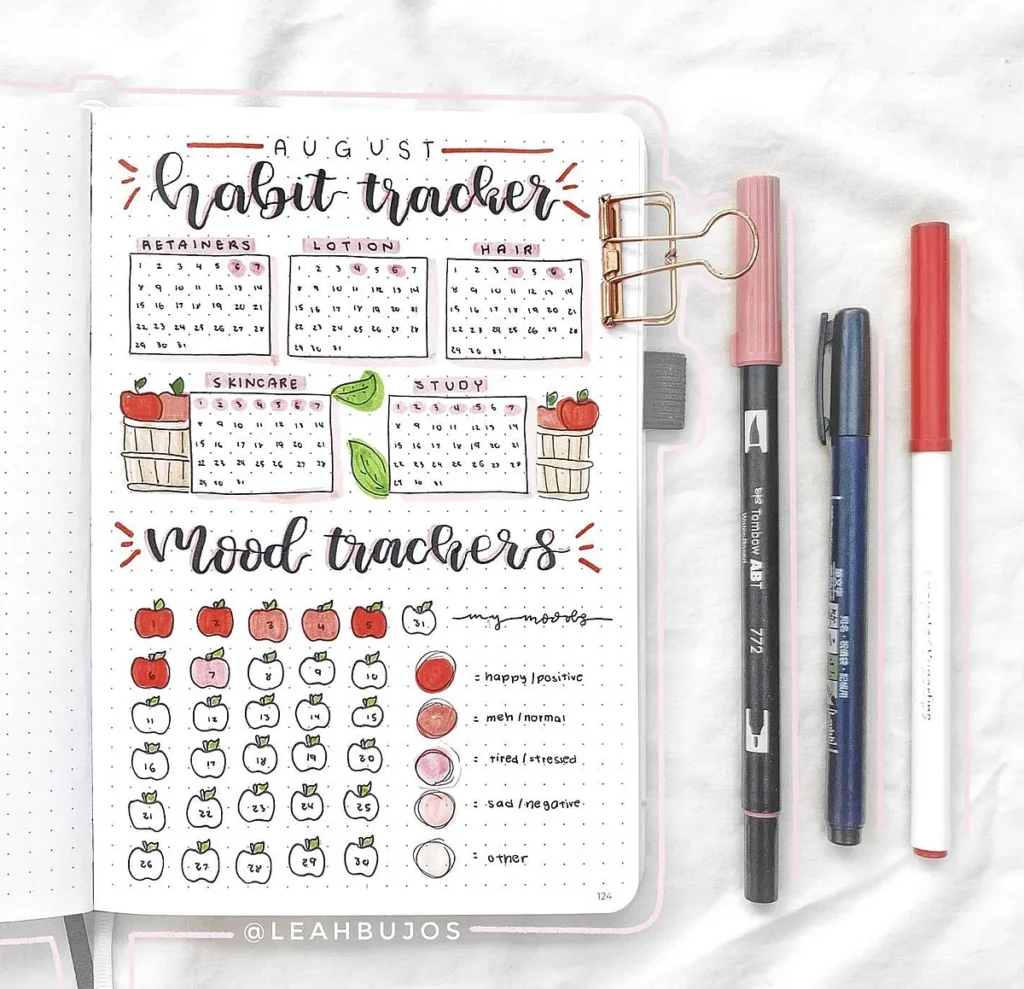 AUGUST
habit tracker
RETAINERS LOTION HAIR
1 2 3 4 5 6 7 1 2 3 4 5 6 7 1 2 3 4 5 6 7
8 9 10 11 12 13 14 8 9 10 11 12 13 14 8 9 10 11 12 13 14
15 16 17 18 19 20 21 15 16 17 18 19 20 21 15 16 17 18 19 20 21
22 23 24 25 26 27 28 22 23 24 25 26 27 28 22 23 24 25 26 27 28
29 30 31 29 30 31 29 30 31
SKINCARE STUDY
1 2 3 4 5 6 7 1 2 3 4 5 6 7
8 9 10 11 12 13 14 8 9 10 11 12 13 14
15 16 17 18 19 20 21 15 16 17 18 19 20 21
22 23 24 25 26 27 28 22 23 24 25 26 27 28
29 30 31 29 30 31
mood trackers
1 2 3 4 5 31 my moods
6 7 8 9 10 = happy/positive
11 12 13 14 15 = meh/normal
16 17 18 19 20 = tired/stressed
21 22 23 24 25 = sad/negative
26 27 28 29 30 = other
124
@LEAHBUJOS
Tombow ABT
772